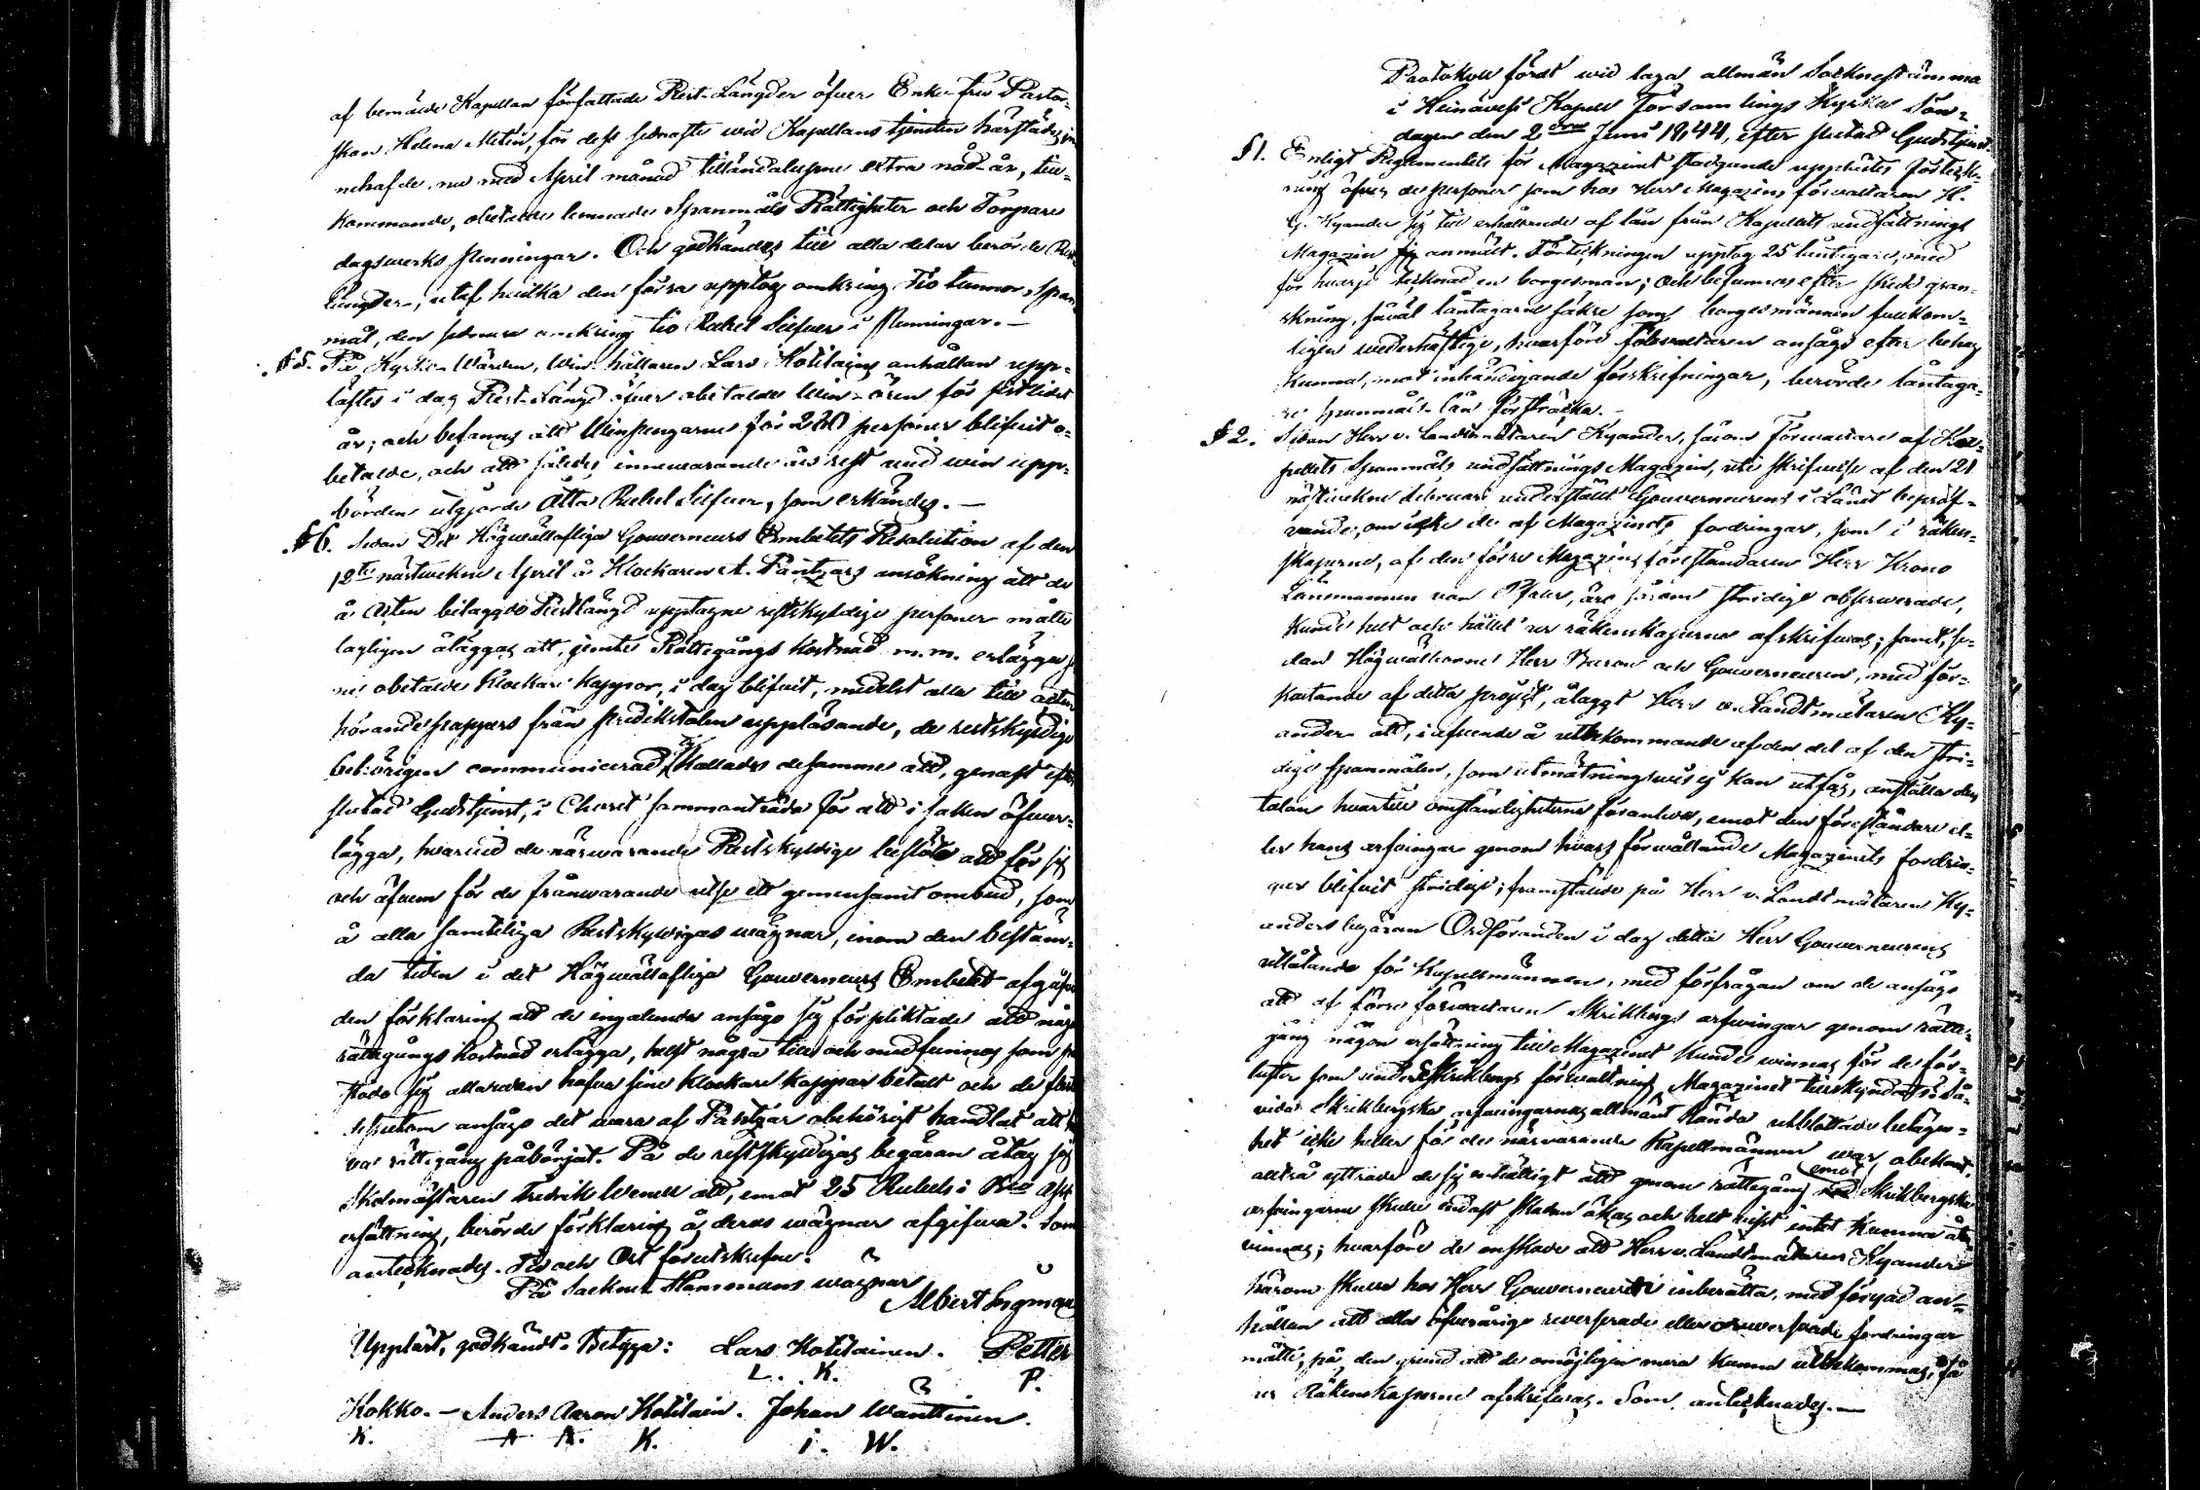 af bemälde Kapellan författade Rest-Längder öfver Enke-fru Pasto-
rskan Helena Metén, för dess sednaste wid Kapellans tjensten härstädes in-
nehafde, nu med April månad tilländalupne extra nåd-år, till-
kommande, obetalde lemnade Spanmåls Rättigheter och Torpare
dagswerks penningar. Och godkändes till alla delar berörde Rest
längder, utaf hvilka den förra upptog omkring Tio tunnor Span-
mål, den sednare omkring tio Rubel Silfver i penningar.—
§5. På Kyrko-Wärden, Win-hållaren Lars Kotilains anhållan upp-
lästes i dag Rest-Längd öfver obetalde Win-ören för sistlidet
år; och befanns att Winpengarne för 280 personer blifvit o-
betalde, och att således innewarande års rest med win upp-
börden utgjorde Åtta Rubel Silfver, som erkändes.—
§6. Sedan Det Högwälloflige Gouverneurs Embetets Resolution af den
12te nästwekne April å Klockaren A. Päntzars ansökning att de
å Acten bilagde Restlängd upptagne restskyldige personer måtte
lagligen åläggas att, jemte Rättegångs kostnad m.m. erlägga si-
ne obetalde Klockare kappor, i dag blifvit, medelst alla till acten
hörande pappers från predikstolen uppläsande, de restskyldige
behörigen communicerad, kallades desamme att, genast efter
slutad Gudstjenst, i Choret sammanträda för att i saken öfver-
lägga, hvarvid de närwarande Restskyldige beslöto att för sig
och äfven för de frånwarande utse ett gemensamt ombud, som
å alla samtelige Restskyldigas wägnar, inom den bestäm-
da tiden i det Högwälloflige Gouverneurs Embetet afgåfve
den förklaring att de ingalunda ansågo sig förpliktade att någon
rättegångs kostnad erlägga, helst några till och med funnos som på-
stodo sig allaredan hafva sine klockare kappor betalt och de flere
dessutom ansågo det wara af Päntzar obehörigt handlat att
rättegång påbörjat. På de restskyldigas begäran åtog sig
Skolmästaren Fredrik Wenell att, emot 25 Rubels i Bco Ass
ersättning, berörde förklaring å deras wägnar afgifva. Som
antecknades. Tid och Ort förutskrefne.
På Sockne Stämmans wägnar
Albert Ingman
Uppläst, godkändt. Betyga: Lars Kotilainen. Petter
L. K. P.
Kokko.— Anders Aaron Kotilain. Johan Wänttinen.
K. A. A. K. J. W.
Protokoll fördt wid laga allmän Socknestämma
i Heinävesi Kapell Församlings Kyrka Sön-
dagen den 2dra Junii 1844, efter slutad Gudstjenst.
§1. Enligt Reglementets för Magazinet stadgande upplästes förteck-
ning öfver de personer som hos Herr Magazins förvaltaren H.
G. Kyander sig till erhållande af lån från Kapellets undsättnings
Magazin anmält. Förteckningen upptog 25 låntagare, med
för hvarje tecknad en borgesman; och befunnos efter skedd gran-
skning, såväl låntagarne säkre som borgesmännen fullkom-
ligen wederhäftige, hvarföre Förvaltaren ansågs efter behag
kunna, mot inhändigande förskrifningar, berörde låntaga-
re Spanmåls-lån försträcka.—
§2. Sedan Herr v. Landtmätaren Kyander, såsom Förwaltare af Ka-
pellets Spanmåls undsättnings Magazin, uti skrifvelse af den 21
nästwekne Februari underställt Gouverneurens i Länet bepröf-
vande, om icke de af Magazinets fordringar, som i räken-
skaperne, af den förre Magazins föreståndaren Herr Krono
Länsmannen von Pfaler, äro såsom stridige observerade,
kunde helt och hållet ur räkenskaperne afskrifvas; samt, se-
dan Högwälborne Herr Baron och Gouverneuren, med för-
kastande af detta project, ålagt Herr v. Landtmätaren Ky-
ander att, i afseende å utbekommande af den del af den stri-
dige Spanmålen, som utmätningswis ej kan utfås, anställa den
talan hvartill omständigheterne föranleda, emot den föreståndare el-
ler hans arfvingar genom hvars förwållande Magazinets fordrin-
gar blifvit stridige; framställde på Herr v. Landtmätaren Ky-
anders begäran Ordföranden i dag detta Herr Gouverneurens
utlåtande för Kapellmännen, med förfrågan om de ansågo
att af förre förwaltaren Skrikbergs arfwingar genom rätte-
gång någon ersättning till Magazinet kunde winnas för de för-
luster som under Skrikbergs förwaltning Magazinet tillskyndats. Så-
vida Skrikbergska arfwingarnes allmänt kända utblottade belägen-
het icke heller för de närwarande Kapellmännen war obekant,
alltså yttrade de sig enhälligt att genom rättegång emot Skrikbergska
arfvingarne skulle endast skadan ökas och helt wist intet kunna åter-
winnas; hvarföre de önskade att Herr v. Landtmätaren Kyander
härom skulle hos Herr Gouverneuren inberätta, med förnyad an-
hållan att alla öfverårige reverserade eller oreverserade fordringar
måtte, på den grund att de omöjligen mera kunna utbekommas, få
ur Räkenskaperne afskrifvas. Som antecknades.—